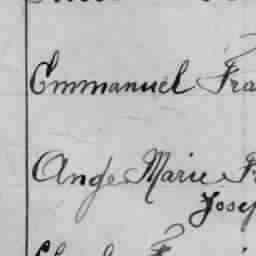 Emmanuel Fra
Ange Marie F
Josep